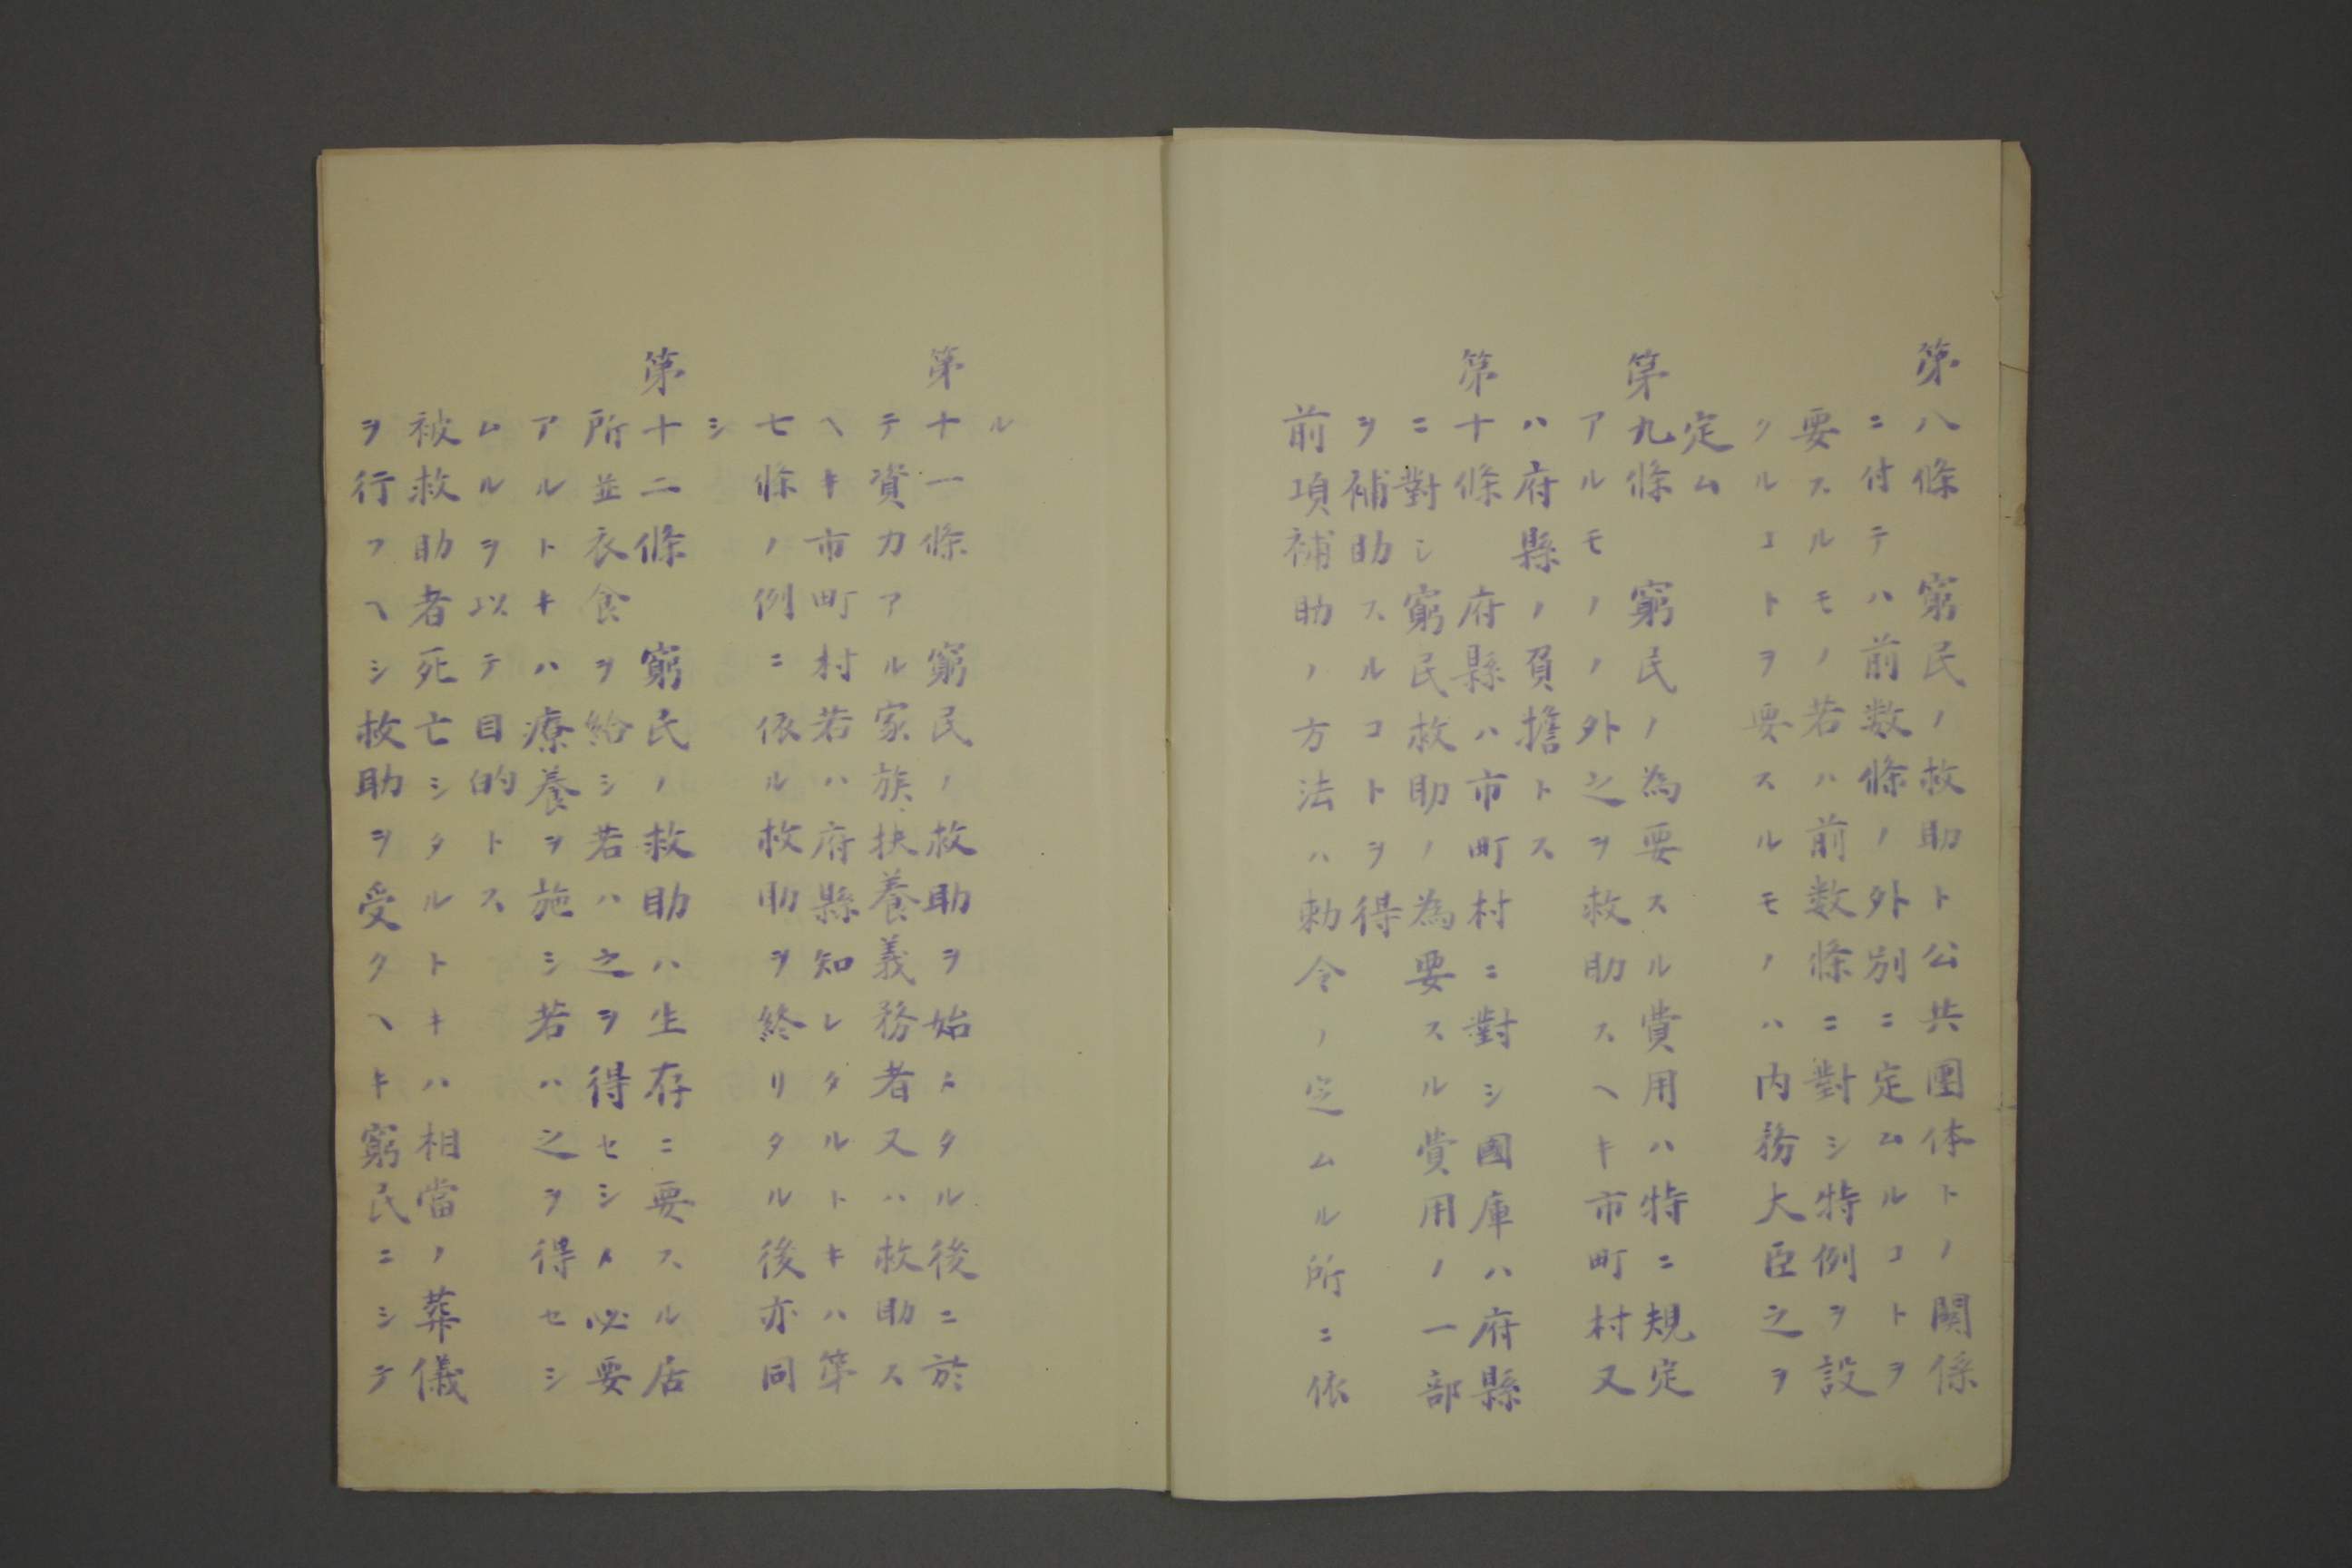 第八條　窮民ノ救助ト公共團体トノ関係
ニ付テハ前数條ノ外別ニ定ムルコトヲ
要スルモノ若ハ前数條ニ對シ特例ヲ設
クルコトヲ要スルモノハ内務大臣之ヲ
定ム
第九條　窮民ノ為要スル費用ハ特ニ規定
アルモノノ外之ヲ救助スヘキ市町村又
ハ府縣ノ負擔トス
第十條　府縣ハ市町村ニ對シ國庫ハ府縣
ニ對シ窮民救助ノ為要スル費用ノ一部
ヲ補助スルコトヲ得
前項補助ノ方法ハ勅令ノ定ムル所ニ依
ル
第十一條　窮民ノ救助ヲ始メタル後ニ於
テ資力アル家族、扶養義務者又ハ救助ス
ヘキ市町村若ハ府縣知レタルトキハ第
七條ノ例ニ依ル救助ヲ終リタル後亦同
シ
第十二條　窮民ノ救助ハ生存ニ要スル居
所並衣食ヲ給シ若ハ之ヲ得セシメ必要
アルトキハ療養ヲ施シ若ハ之ヲ得セシ
ムルヲ以テ目的トス
被救助者死亡シタルトキハ相當ノ葬儀
ヲ行フヘシ救助ヲ受クヘキ窮民ニシテ